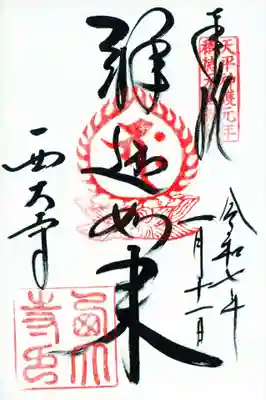 奉拝
天平神護元年
令和七年
一月十一日
釋迦如来
西大寺
西大寺印